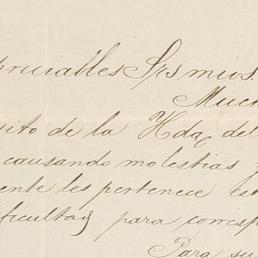 preciables Srs mios.
Much
uito de la Hda del
causando molestias y
ente les pertenece est
ificultad para corresp
Para su